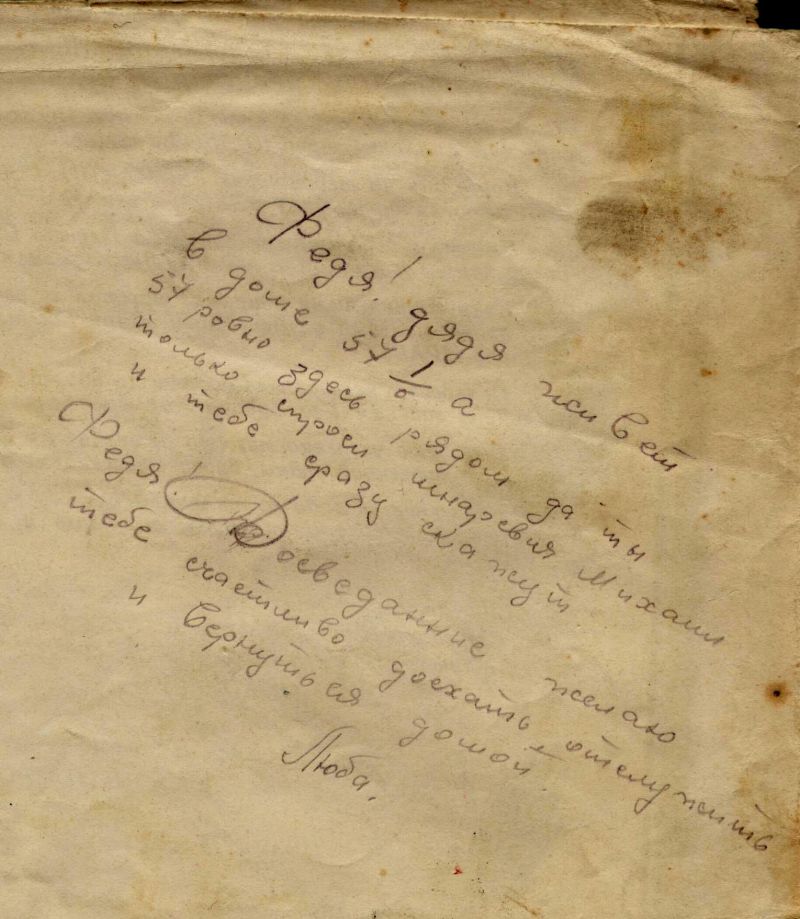 Федя! дядя живет
в доме 57 1/6 а
57 ровно здесь рядом да ты
только спроси Михаил
и тебе сразу скажут
Федя! Досведанние желаю
тебе счастливо доехать отслужить
и вернуться домой.
Люба.